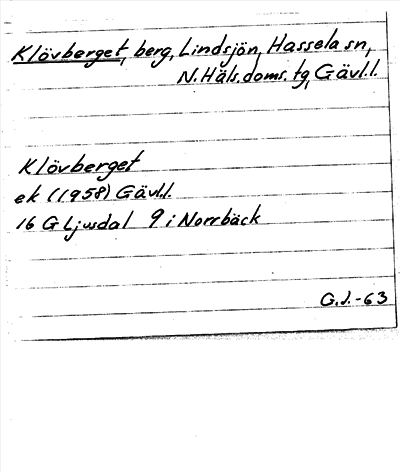 Klövberget, berg, Lindsjön, Hassela sn,
N. Häls. doms. tg, Gävl.l.
Klövberget
ek (1958) Gävl.l.
16 G Ljusdal 9 i Norrbäck
G.J.-63